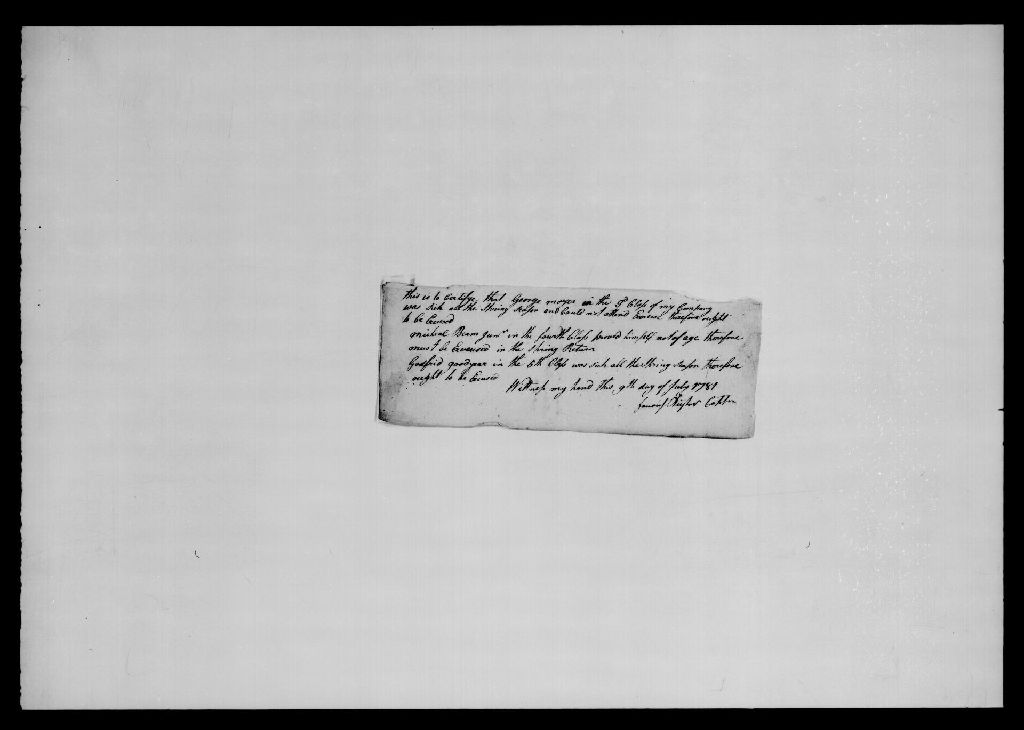 this is to Certifye that George moyer in the 5th Class of my Company
was sick all the Spring season and Could not attend Exercise therefore ought
to be Excused
michael Beam Junr in the fourth Class proved himself not of age therefore
must be Excused in the Spring Return
Godfrid goodyear in the 6th Class was sick all the Spring season therefore
ought to be Excused
Wittness my hand this 9th day of July 1781
Captn